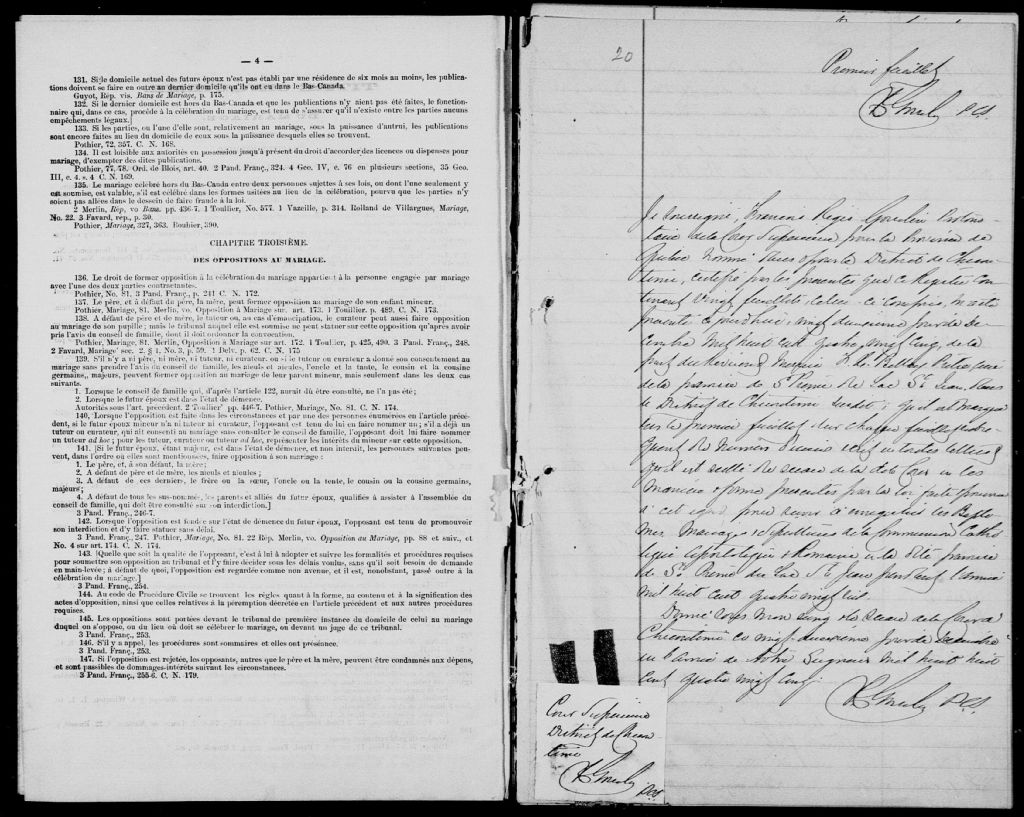 — 4 —
131. Si le domicile actuel des futurs époux n'est pas établi par une résidence de six mois au moins, les publica-
tions doivent se faire en outre au dernier domicile qu'ils ont eu dans le Bas-Canada.
Guyot, Rép. vis. Bans de Mariage, p. 175.
132. Si le dernier domicile est hors du Bas-Canada et que les publications n'y aient pas été faites, le fonction-
naire qui, dans ce cas, procède à la célébration du mariage, est tenu de s'assurer qu'il n'existe entre les parties aucuns
empêchements légaux.]
133. Si les parties, ou l'une d'elle sont, relativement au mariage, sous la puissance d'autrui, les publications
sont encore faites au lieu du domicile de ceux sous la puissance desquels elles se trouvent.
Pothier, 72, 357. C. N. 168.
134. Il est loisible aux autorités en possession jusqu'à présent du droit d'accorder des licences ou dispenses pour
mariage, d'exempter des dites publications.
Pothier, 77, 78. Ord. de Blois, art. 40. 2 Pand. Franç., 324. 4 Geo. IV, c. 76 en plusieurs sections, 35 Geo.
III, c. 4. s. 4 C. N. 169.
135. Le mariage célébré hors du Bas-Canda entre deux personnes sujettes à ses lois, ou dont l'une seulement y
est soumise, est valable, s'il est célébré dans les formes usitées au lieu de la célébration, pourvu que les parties n'y
soient pas allées dans le dessein de faire fraude à la loi.
2 Merlin, Rép, vo Bans. pp. 436-7. 1 Toullier, No. 577. 1 Vazeille, p. 314. Rolland de Villargues, Mariage,
No. 22. 3 Favard, rép., p. 30.
Pothier, Mariage, 327, 363. Bouhier, 390.
CHAPITRE TROISIÈME.
DES OPPOSITIONS AU MARIAGE.
136. Le droit de former opposition à la célébration du mariage appartient à la personne engagée par mariage
avec l'une des deux parties contractantes.
Pothier, No. 81. 3 Pand. Franç., p. 241 C. N. 172.
137. Le père, et à défaut du père, la mère, peut former opposition au mariage de son enfant mineur.
Pothier, Mariage, 81. Merlin, vo. Opposition à Mariage sur. art. 173. 1 Touillier. p. 489. C. N. 173.
138. A défaut de père et de mère, le tuteur ou, au cas d'émancipation, le curateur peut aussi faire opposition
au mariage de son pupille ; mais le tribunal auquel elle est soumise ne peut statuer sur cette opposition qu'après avoir
pris l'avis du conseil de famille, dont il doit ordonner la convocation.
Pothier, Mariage, 81. Merlin, Opposition à Mariage sur art. 172. 1 Toullier, p. 425, 490. 3 Pand. Franç., 248.
2 Favard, Mariage' sec. 2. § 1, No. 3, p. 59. 1 Delv. p. 62. C. N. 175
139. S'il n'y a ni père, ni mère, ni tuteur, ni curateur, ou si le tuteur ou curateur a donné son consentement au
mariage sans prendre l'avis du conseil de famille, les aïeuls et aïeules, l'oncle et la tante, le cousin et la cousine
germains, majeurs, peuvent former opposition au mariage de leur parent mineur, mais seulement dans les deux cas
suivants.
1. Lorsque le conseil de famille qui, d'après l'article 122, aurait dû être consulté, ne l'a pas été ;
2. Lorsque le futur époux est dans l'état de démence.
Autorités sous l'art. précédent. 2 Toullier' pp. 446-7. Pothier, Mariage, No. 81. C. N. 174.
140, Lorsque l'opposition est faite dans les circonstances et par une des personnes énumérées en l'article précé-
dent, si le futur époux mineur n'a ni tuteur ni curateur, l'opposant est tenu de lui en faire nommer un ; s'il a déjà un
tuteur ou curateur, qui ait consenti au mariage sans consulter le conseil de famille, l'opposant doit lui faire nommer
un tuteur ad hoc ; pour les tuteur, curateur ou tuteur ad hoc, représenter les intérêts du mineur sur cette opposition.
141. [Si le futur époux, étant majeur, est dans l'état de démence, et non interdit, les personnes suivantes peu-
vent, dans l'ordre où elles sont mentionnées, faire opposition à son mariage :
1. Le père, et, à son défaut, la mère ;
2. A défaut de père et de mère, les aïeuls et aïeules ;
3. A défaut de ces derniers, le frère ou la sœur, l'oncle ou la tente, le cousin ou la cousine germains,
majeurs ;
4. A défaut de tous les sus-nommés, les parents et alliés du futur époux, qualifiés à assister à l'assemblée du
conseil de famille, qui doit être consulté sur son interdiction.]
3 Pand. Franç., 246-7.
142. Lorsque l'opposition est fondée sur l'état de démence du futur époux, l'opposant est tenu de promouvoir
son interdiction et d'y faire statuer sans délai.
3 Pand. Franç., 247. Pothier, Mariage, No. 81. 22 Rép. Merlin, vo. Opposition au Mariage, pp. 88 et suiv., et
No. 4 sur art. 174. C. N. 174.
143. [Quelle que soit la qualité de l'opposant, c'est à lui à adopter et suivre les formalités et procédures requises
pour soumettre son opposition au tribunal et l'y faire décider sous les délais voulus, sans qu'il soit besoin de demande
en main-levée ; à défaut de quoi, l'opposition est regardée comme non avenue, et il est, nonobstant, passé outre à la
célébration du mariage.]
3 Pand. Franç., 254.
144. Au code de Procédure Civile se trouvent les règles quant à la forme, au contenu et à la signification des
actes d'opposition, ainsi que celles relatives à la péremption décrétée en l'article précédent et aux autres procédures
requises.
145. Les oppositions sont portées devant le tribunal de première instance du domicile de celui au mariage
duquel on s'oppose, ou du lieu où doit se célébrer le mariage, ou devant un juge de ce tribunal.
3 Pand. Franç., 253.
146. S'il y a appel, les procédures sont sommaires et elles ont préséance.
3 Pand. Franç., 253.
147. Si l'opposition est rejetée, les opposants, autres que le père et la mère, peuvent être condamnés aux dépens,
et sont passibles de dommages-intérêts suivant les circonstances.
3 Pand. Franç., 255-6. C. N. 179.
20
Premier feuillet
PCS.
Je soussigné, François Régis Gosselin Protono-
taire de la Cour Supérieure pour la Province de
Québec nommé dans & pour le District de Chicou-
timi, certifie par les présentes que ce Registre con-
tenant Vingt feuillets celui-ci compris, m'a été
présenté ce jourd'hui, vingt deuxième jour de dé-
cembre mil huit cent quatre-vingt cinq, de la
part du Révérend Messire Prêtre curé
de la paroisse de St Prime du Lac St Jean, dans
le District de Chicoutimi susdit ;
sur le premier feuillet & sur chaque feuillet
du numéro d'icelui écrit en toutes lettres
qu'il est scellé du sceau de la dite Cour en la
manière & forme prescrites par la loi faite & pourvue
à cet égard, pour servir à enregistrer les Baptê-
mes, Mariages & Sépultures de la Communion Catho-
lique Apostolique & Romaine de la dite paroisse
de St Prime du Lac St Jean pendant l'année
mil huit cent quatre vingt six.
Donné sous mon seing & le sceau de la Cour à
Chicoutimi ce vingt deuxième jour de décembre
en l'année de Notre Seigneur mil huit
cent quatre vingt cinq.
PCS.
Cour Supérieure
District de Chicou-
timi
PCS